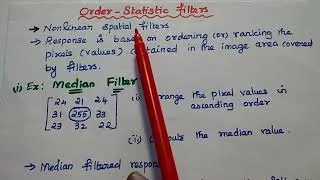 Order - Statistic filters
→ Nonlinear spatial filters
→ Response is based on ordering (or) ranking the
pixels (values) contained in the image area covered
by filters.
i) Ex: Median Filter
24 21 24
31 255 33
23 32 22
(i) arrange the pixel values in
ascending order
(ii) compute the median value.
→ Median filtered respon